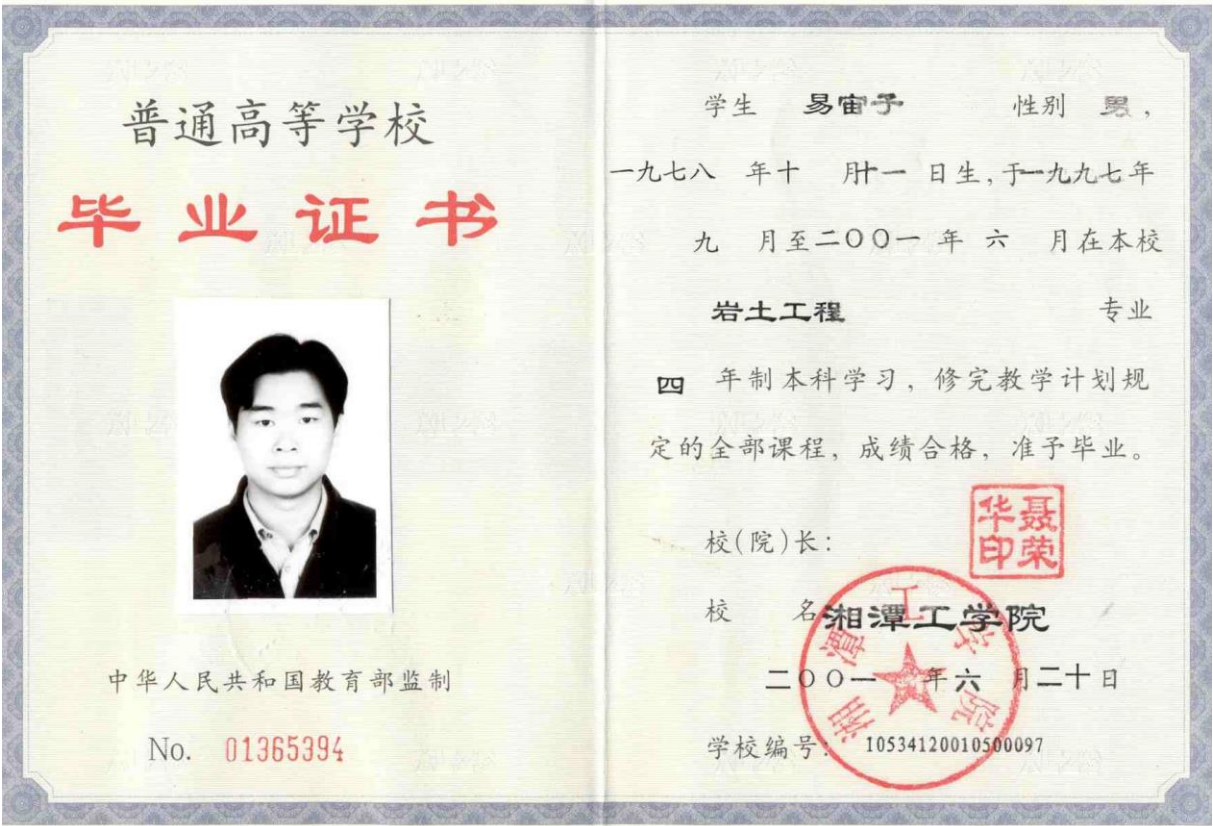 普通高等学校
毕业证书
中华人民共和国教育部监制
No. 01365394
学生 易宙子 性别 男，
一九七八 年十 月十一 日生，于一九九七年
九 月至二〇〇一年 六 月在本校
岩土工程 专业
四 年制本科学习，修完教学计划规
定的全部课程，成绩合格，准予毕业。
聂荣华印
校(院)长：
校 名 湘潭工学院
湘潭工学院
二〇〇一 年六 月二十日
学校编号： 10534120010500097